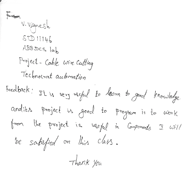 From
V. Vignesh
STD 11146
ADDONS Lab
Project - Cable wire cutting
Technocrat automation
Feedback: It is very useful to learn to good knowledge
and this project is good to program is to work
from the project is useful in Components I will
be satisfied on this class.
Thank you